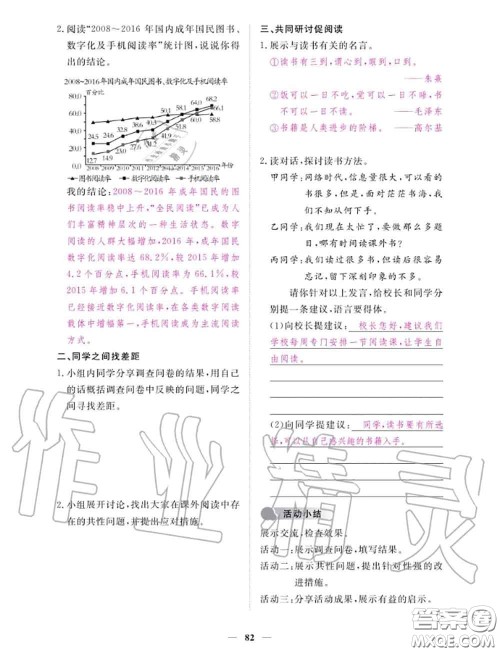 2.阅读“2008～2016年国内成年国民图书、
数字化及手机阅读率”统计图,说说你得
出的结论。
2008~2016年国内成年国民图书、数字化及手机阅读率
百分比
80.0
60.0
40.0
20.0
0.0
24.5 24.6
12.7 14.9 23.0
50.1 58.1 64.0 68.2
66.1
58.8
2008 2009 2010 2011 2012 2013 2014 2015 2016 年份
图书阅读率 数字化阅读率 手机阅读率
我的结论:2008～2016年成年国民的图
书阅读率稳中上升,“全民阅读”已成为人
们丰富精神层次的一种生活状态。数字
阅读的人群大幅增加,2016年,成年国民
数字化阅读率达68.2%,较2015年增加
4.2个百分点,手机阅读率为66.1%,较
2015年增加6.1个百分点。手机阅读率
已经接近数字化阅读率,在各类数字阅读
载体中增幅第一,手机阅读成为主流阅读
方式。
二、同学之间找差距
1.小组内同学分享调查问卷的结果,用自己
的话概括调查问卷中反映的问题,同学之
间寻找差距。
2.小组展开讨论,找出大家在课外阅读中存
在的共性问题,并提出应对措施。
三、共同研讨促阅读
1.展示与读书有关的名言。
①读书有三到,谓心到,眼到,口到。
——朱熹
②饭可以一日不吃,觉可以一日不睡,书
不可以一日不读。——毛泽东
③书籍是人类进步的阶梯。——高尔基
2.读对话,探讨读书方法。
甲同学:网络时代,信息量很大,可以看的
书很多,但是,面对茫茫书海,我
们不知从何下手。
乙同学:我们现在太忙了,要做那么多题
目,哪有时间读课外书?
丙同学:我们读过很多书,但读后很容易
忘记,留下深刻印象的不多。
请你针对以上发言,给校长和同学分
别提一条建议,语言要得体。
(1)向校长提建议:校长您好,建议我们
学校每周专门安排一节阅读课,让学生自
由阅读。
(2)向同学提建议:同学,读书要有所选
择,可以从自己感兴趣的书籍入手。
活动小结
展示交流,检查效果。
活动一:展示调查问卷,填写结果。
活动二:展示共性问题,提出针对性强的改
进措施。
活动三:分享活动成果,展示有益的启示。
82
作业精灵
答案圈
MXQE.COM